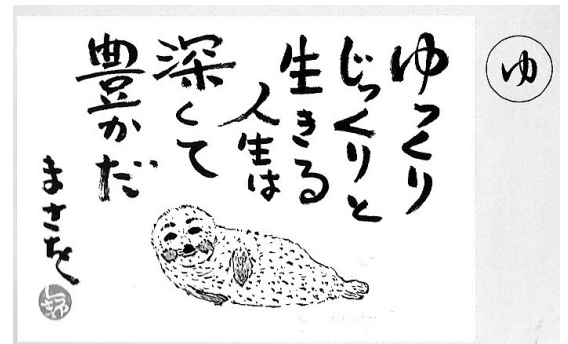 ゆ
ゆっくり
じっくりと
生きる
人生は
深くて
豊かだ
まさを